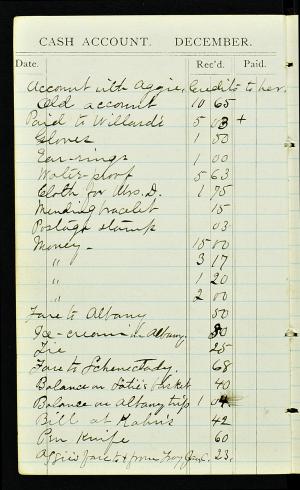 CASH ACCOUNT. DECEMBER.
Date. Rec'd. Paid.
Account with Aggie, Credits to her.
Old account 10 65
Paid to Willard's 5 03 +
Gloves 1 50
Ear-rings 1 00
Water-proof 5 63
Cloth for Mrs. D. 1 75
Mending bracelet 15
Postage stamp 03
Money - 15 00
" 3 17
" 1 20
" 2 00
Fare to Albany 50
Ice-cream in Albany.
Tie 25
Fare to Schenectady. 68
Balance on basket 40
Balance on Albany trip 1
Bill at Hahn's 42
Pen Knife 60
Aggie's fare to & from Troy Jan. 23.